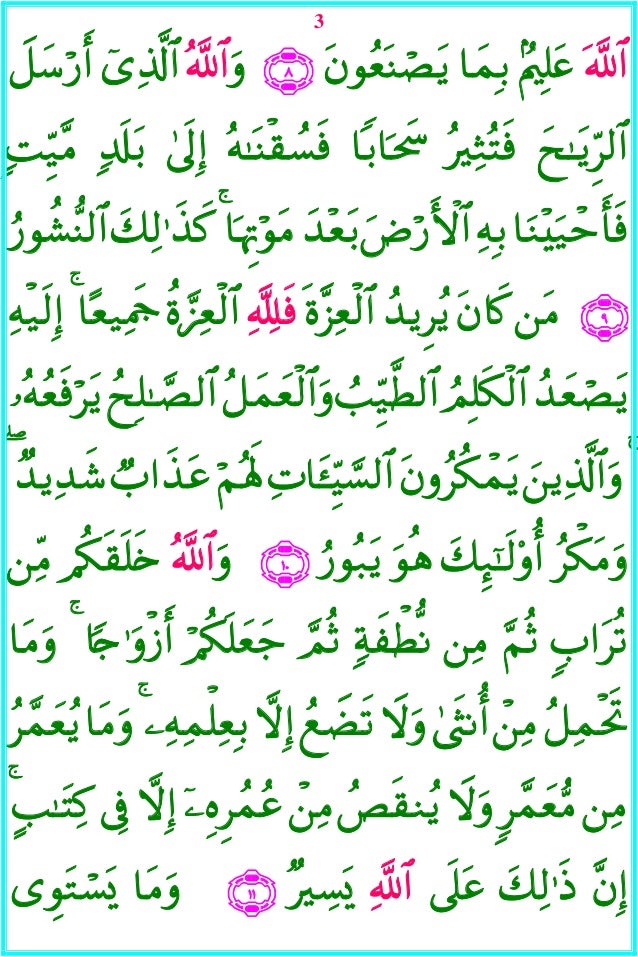 3
ٱللَّهَ عَلِيمٌۢ بِمَا يَصْنَعُونَ ٨ وَٱللَّهُ ٱلَّذِىٓ أَرْسَلَ
ٱلرِّيَـٰحَ فَتُثِيرُ سَحَابًا فَسُقْنَـٰهُ إِلَىٰ بَلَدٍ مَّيِّتٍ
فَأَحْيَيْنَا بِهِ ٱلْأَرْضَ بَعْدَ مَوْتِهَا ۚ كَذَٰلِكَ ٱلنُّشُورُ
٩ مَن كَانَ يُرِيدُ ٱلْعِزَّةَ فَلِلَّهِ ٱلْعِزَّةُ جَمِيعًا ۚ إِلَيْهِ
يَصْعَدُ ٱلْكَلِمُ ٱلطَّيِّبُ وَٱلْعَمَلُ ٱلصَّـٰلِحُ يَرْفَعُهُۥ
ۚ وَٱلَّذِينَ يَمْكُرُونَ ٱلسَّيِّـَٔاتِ لَهُمْ عَذَابٌ شَدِيدٌ ۖ
وَمَكْرُ أُو۟لَـٰٓئِكَ هُوَ يَبُورُ ١٠ وَٱللَّهُ خَلَقَكُم مِّن
تُرَابٍ ثُمَّ مِن نُّطْفَةٍ ثُمَّ جَعَلَكُمْ أَزْوَٰجًا ۚ وَمَا
تَحْمِلُ مِنْ أُنثَىٰ وَلَا تَضَعُ إِلَّا بِعِلْمِهِۦ ۚ وَمَا يُعَمَّرُ
مِن مُّعَمَّرٍ وَلَا يُنقَصُ مِنْ عُمُرِهِۦٓ إِلَّا فِى كِتَـٰبٍ ۚ
إِنَّ ذَٰلِكَ عَلَى ٱللَّهِ يَسِيرٌ ١١ وَمَا يَسْتَوِى